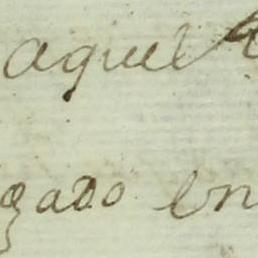 aquel
gado en